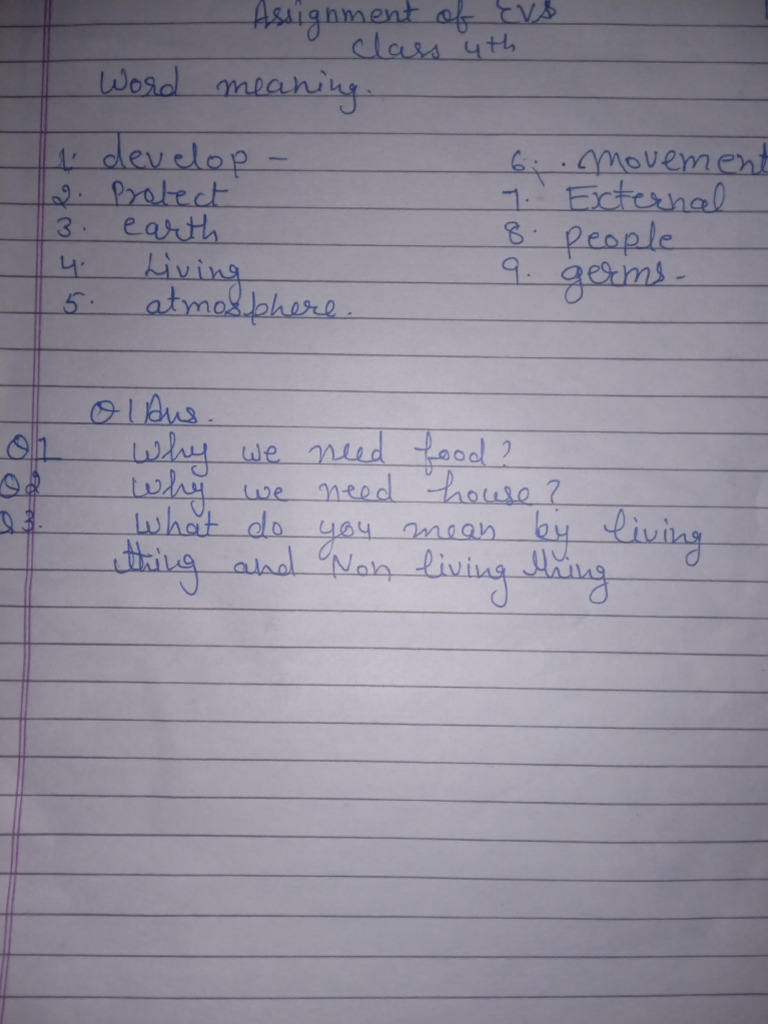 Assignment of EVS
Class 4th
Word meaning.
1. develop -
2. Protect
3. earth
4. Living
5. atmosphere.
6. . Movement
7. External
8. people
9. germs -
Q/Ans.
Q1 Why we need food?
Q2 Why we need house?
Q3. What do you mean by living
thing and Non living thing